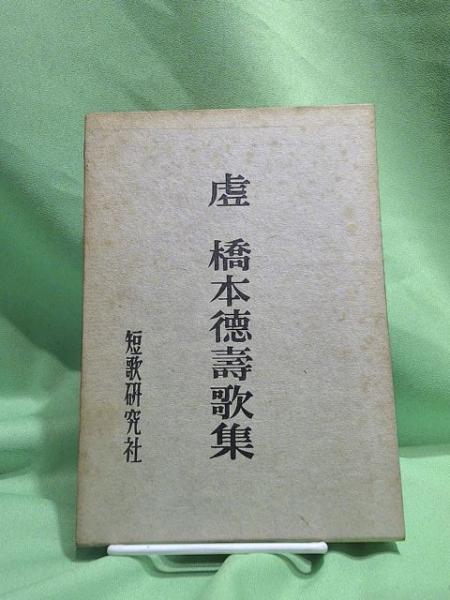 虗 橋本德壽歌集
短歌研究社